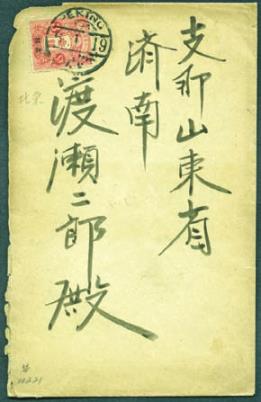 支那山東省
済南
渡瀬二郎殿
PEKING
19
北京